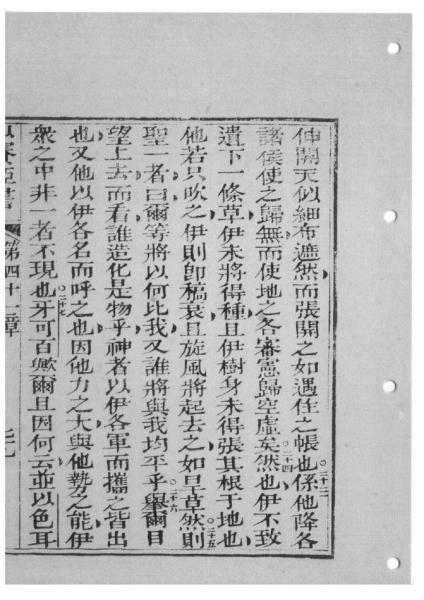 伸開天似細布遮然而張開之如遇住之帳也係他降各
諸侯使之歸無而使地之各審憲歸空虛矣然也伊不致
遺下一條草伊未將得種且伊樹身未得張其根于地也
他若只吹之伊則即稿衰且旋風將起去之如呈草然則
聖一者曰爾等將以何比我又誰將與我均平乎舉爾目
望上去而看誰造化是物乎神者以伊各軍而攜之皆出
也又他以伊各名而呼之也因他力之大與他勢之能伊
衆之中非一者不現也牙可百歟爾且因何云並以色耳
第四十章